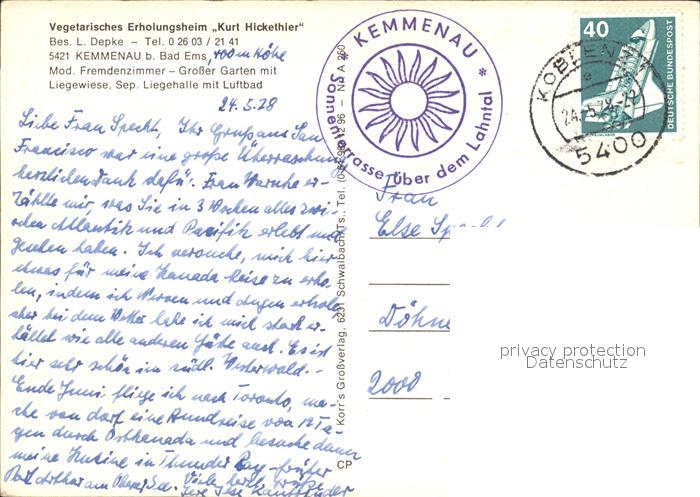 Vegetarisches Erholungsheim „Kurt Hickethier"
Bes. L. Depke – Tel. 0 26 03 / 21 41
5421 KEMMENAU b. Bad Ems, 400 m Höhe
Mod. Fremdenzimmer – Großer Garten mit
Liegewiese, Sep. Liegehalle mit Luftbad
24.5.78
Liebe Frau Specht, Ihr Gruß aus San
Francisco war eine große Überraschung
herzlichen Dank dafür. Frau Warnke er-
zählte mir, was Sie in 3 Wochen alles zwi-
schen Atlantik und Pazifik erlebt und
gesehen haben. Ich versuche, mich hier
etwas für meine Kanada Reise zu erho-
len, indem ich Nerven und Augen erhole,
aber bei dem Wetter habe ich mich stark er-
kältet wie alle anderen Gäste auch. Es ist
hier sehr schön im südl. Westerwald.–
Ende Juni fliege ich nach Toronto, ma-
che von dort eine Rundreise von 12 Ta-
gen durch Ostkanada und besuche dann
meine Kusine in Thunder Bay – früher
Port Arthur am Oberen See. Viele herzl. Grüße
Ihre Ilse
CP
Korr's Großverlag, 6231 Schwalbach/Ts., Tel.
* KEMMENAU *
Sonnenterrasse über dem Lahntal
40
DEUTSCHE BUNDESPOST
KOBLENZ
24.5.78
5400
Frau
Else Specht
Döhne
2000
privacy protection
Datenschutz